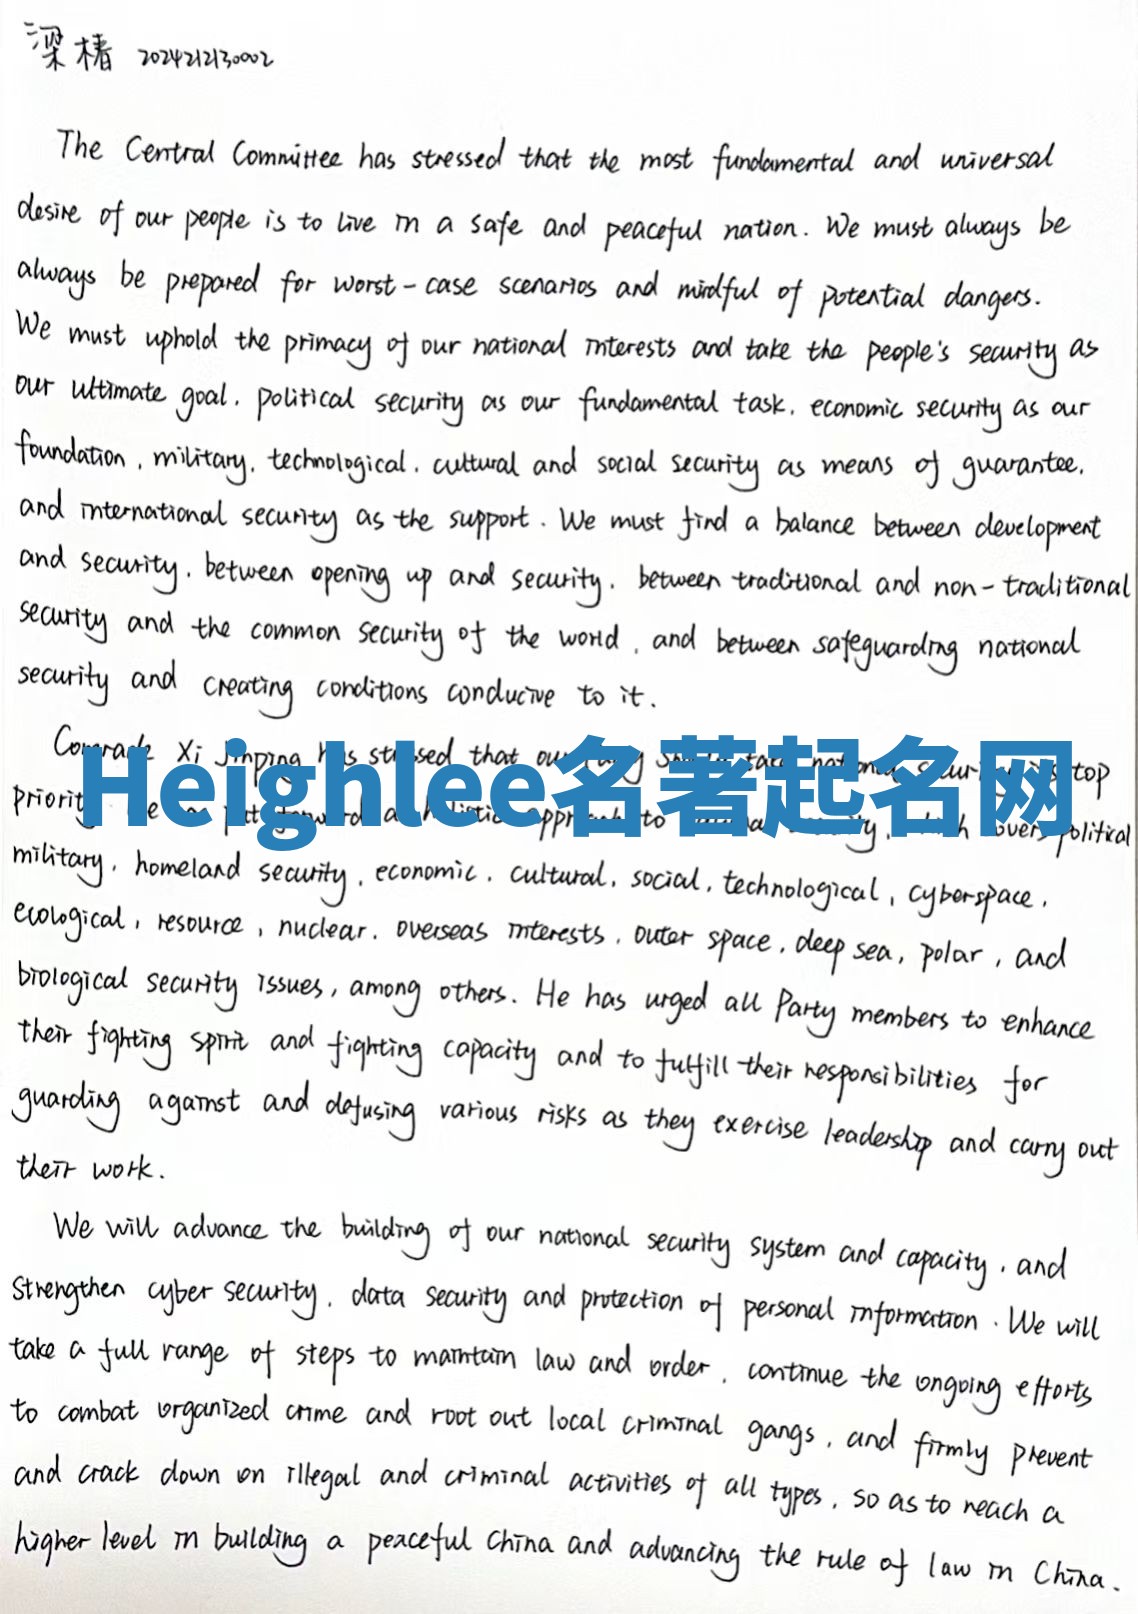 梁椿 2024212130002
The Central Committee has stressed that the most fundamental and universal
desire of our people is to live in a safe and peaceful nation. We must always be
always be prepared for worst-case scenarios and mindful of potential dangers.
We must uphold the primacy of our national interests and take the people's security as
our ultimate goal, political security as our fundamental task, economic security as our
foundation, military, technological, cultural and social security as means of guarantee,
and international security as the support. We must find a balance between development
and security, between opening up and security, between traditional and non-traditional
security and the common security of the world, and between safeguarding national
security and creating conditions conducive to it.
Comrade Xi Jinping has stressed that our top
Heighlee名著起名网
priority to political
military, homeland security, economic, cultural, social, technological, cyberspace,
ecological, resource, nuclear, overseas interests, outer space, deep sea, polar, and
biological security issues, among others. He has urged all Party members to enhance
their fighting spirit and fighting capacity and to fulfill their responsibilities for
guarding against and defusing various risks as they exercise leadership and carry out
their work.
We will advance the building of our national security system and capacity, and
strengthen cyber security, data security and protection of personal information. We will
take a full range of steps to maintain law and order, continue the ongoing efforts
to combat organized crime and root out local criminal gangs, and firmly prevent
and crack down on illegal and criminal activities of all types, so as to reach a
higher level in building a peaceful China and advancing the rule of law in China.